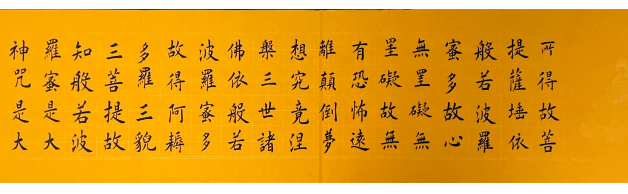 所得故菩
提薩埵依
般若波羅
蜜多故心
無罣礙無
罣礙故無
有恐怖遠
離顛倒夢
想究竟涅
槃三世諸
佛依般若
波羅蜜多
故得阿耨
多羅三貌
三菩提故
知般若波
羅蜜是大
神咒是大